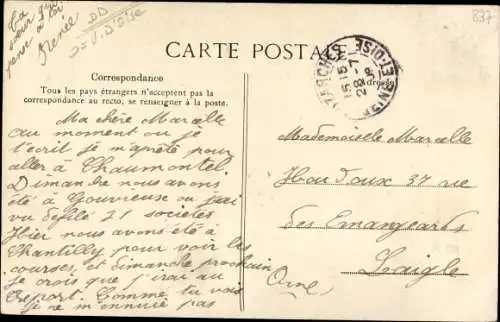 Ta
sœur qui
pense à toi
Renée
DD
V. D'Oise
837
CARTE POSTALE
Correspondance
Tous les pays étrangers n'acceptent pas la
correspondance au recto, se renseigner à la poste.
Ma chère Marcelle
au moment ou je
t'écrit je m'aprête pour
aller à Chaumontel
Dimanche nous avons
été à Gouvieuse ou j'ai
vu défilé 21 societés
Hier nous avons été à
Chantilly pour voir les
courses et dimanche prochain
je crois que j'irai au
Creport. Comme tu vois
je ne m'ennuie pas
LUZARCHES
15 15
28 -7
SEINE-ET-OISE
Mademoiselle Marcelle
37 rue
des Emangeards
Laigle
Orne